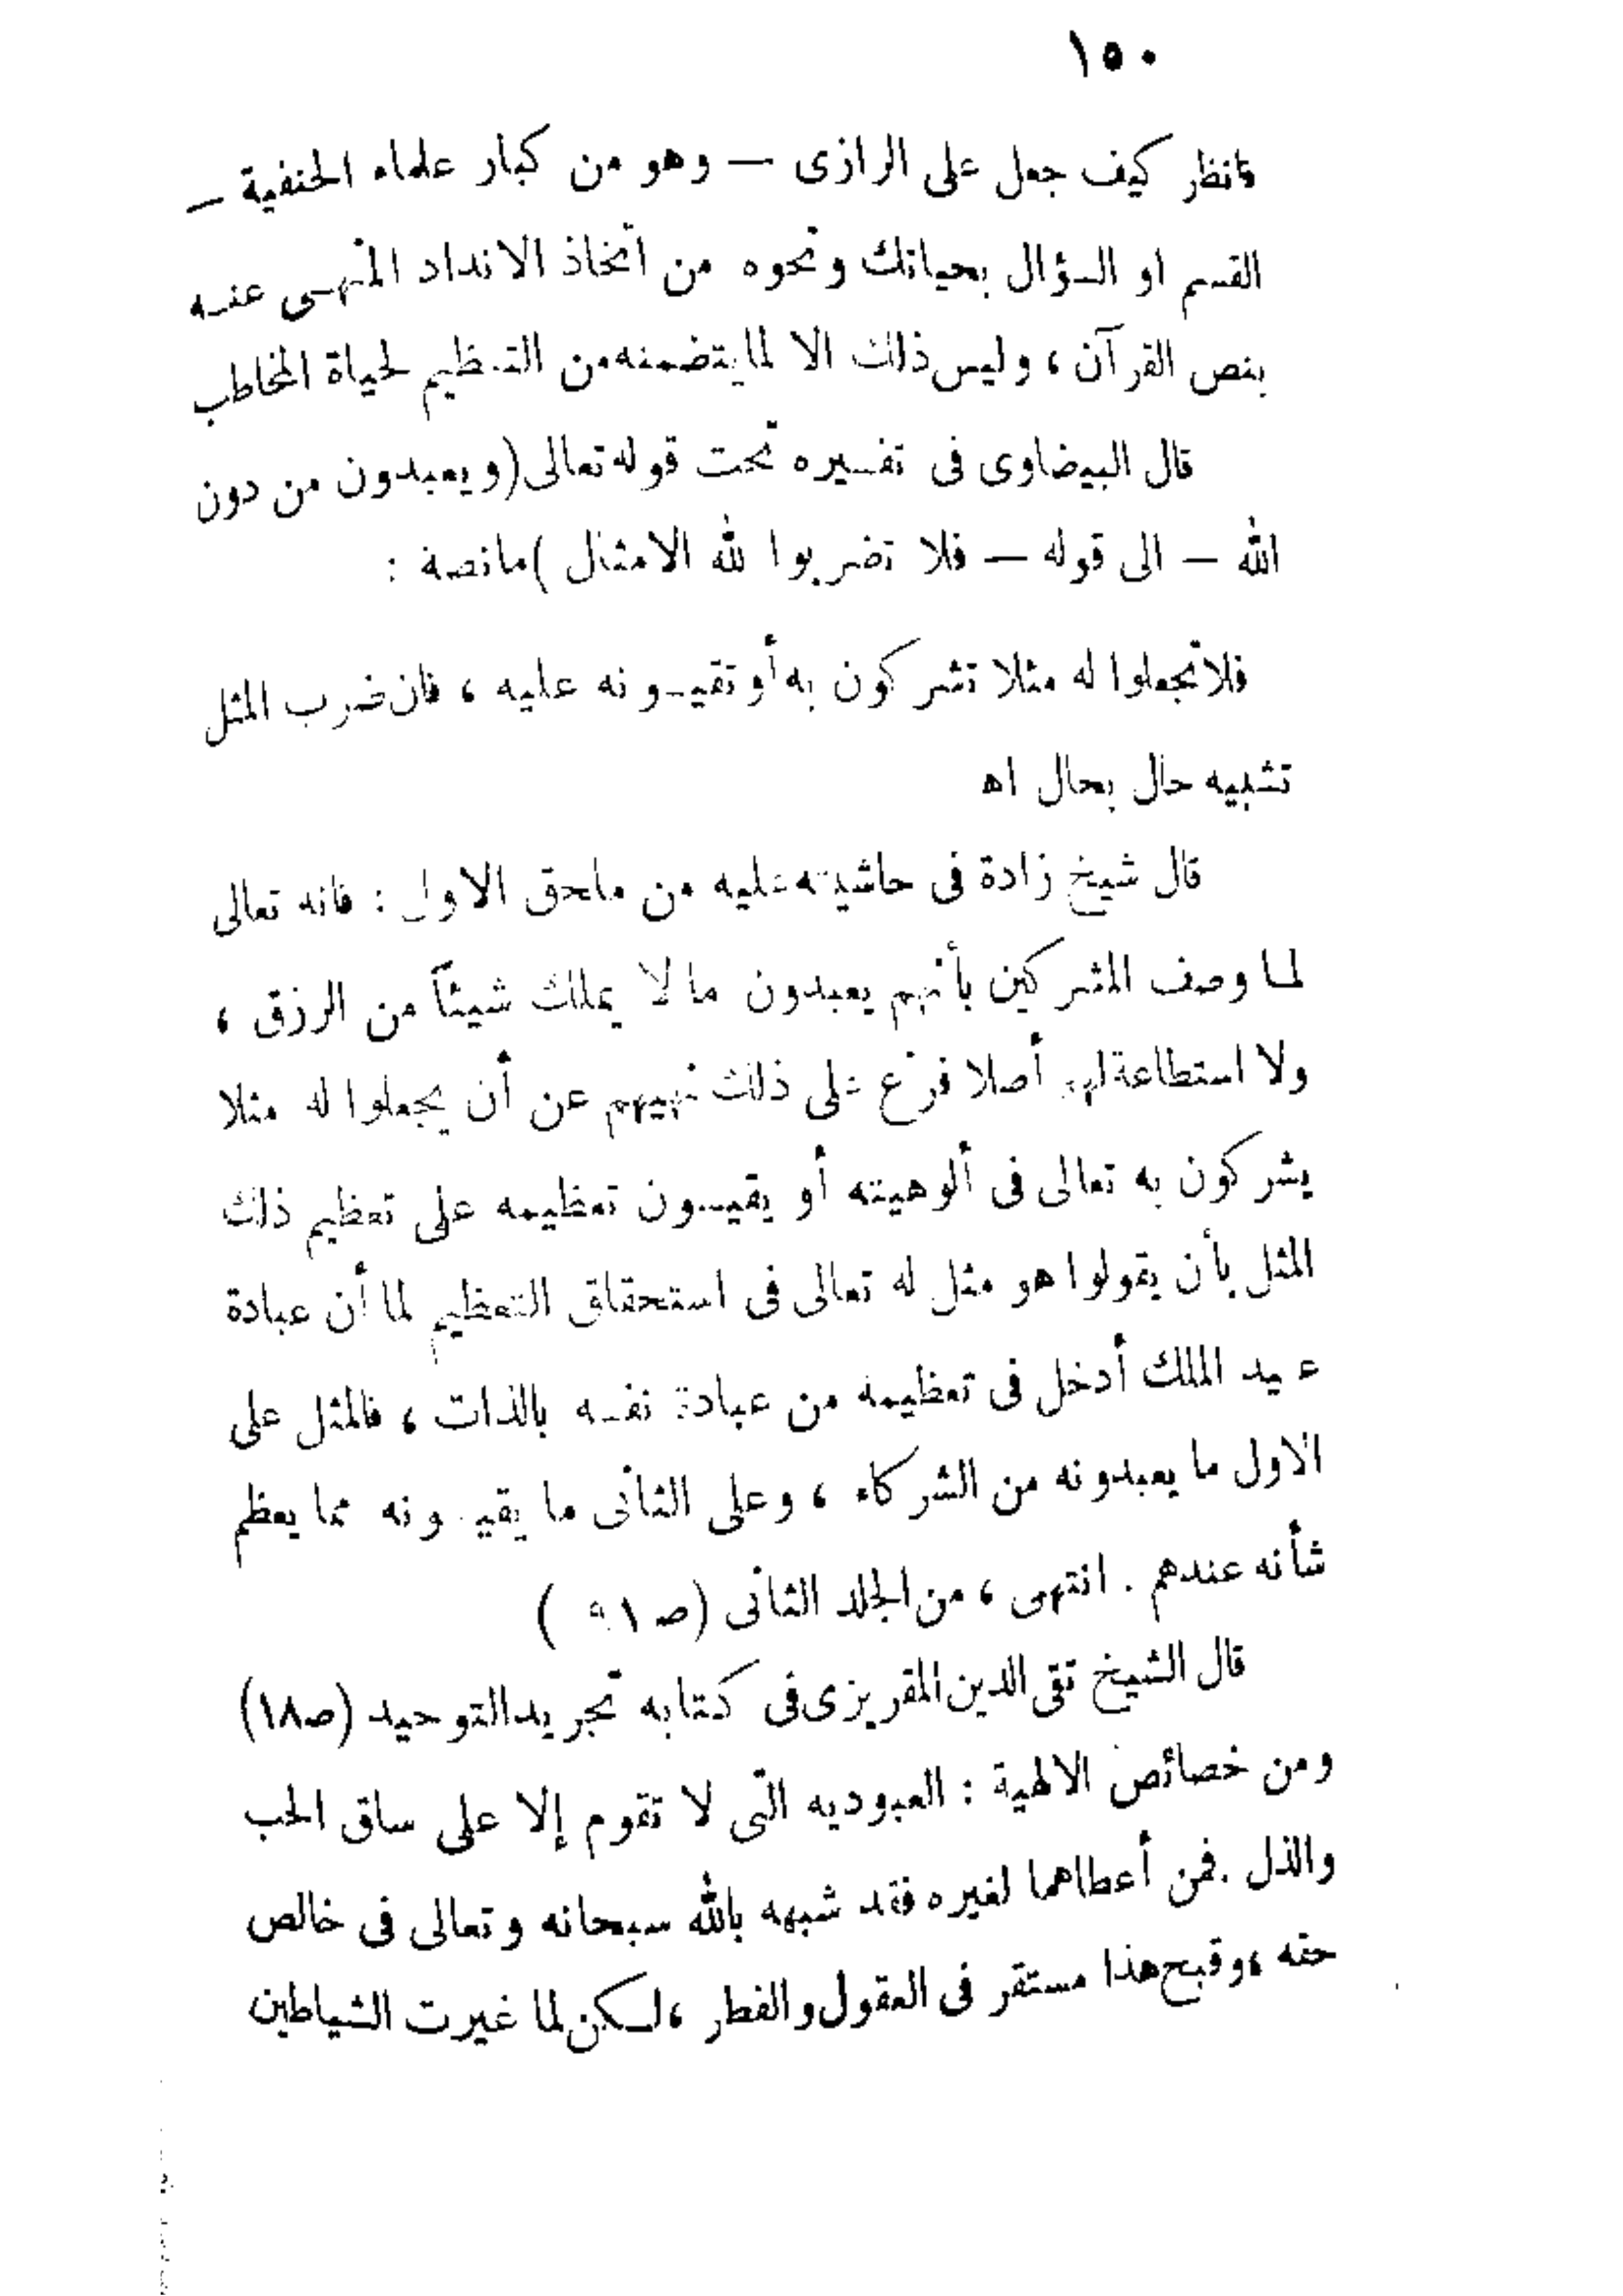 ١٥٠
فانظر كيف جعل على الرازى — وهو من كبار علماء الحنفية —
القسم او السؤال بحياتك ونحوه من اتخاذ الانداد المنهى عنه
بنص القرآن ، وليس ذلك الا لما يتضمنه من التعظيم لحياة المخاطب
قال البيضاوى فى تفسيره تحت قوله تعالى (ويعبدون من دون
الله — الى قوله — فلا تضربوا لله الامثال ) مانصة :
فلا تجعلوا له مثلا تشركون به أو تقيسونه عليه ، فان ضرب المثل
تشبيه حال بحال اه
قال شيخ زادة فى حاشيته عليه من ملحق الاول : فانه تعالى
لما وصف المشركين بأنهم يعبدون ما لا يملك شيئاً من الرزق ،
ولا استطاعة لهم أصلا فرّع على ذلك نهيهم عن أن يجعلوا له مثلا
يشركون به تعالى فى ألوهيته أو يقيسون تعظيمه على تعظيم ذلك
المثل بأن يقولوا هو مثل له تعالى فى استحقاق التعظيم لما أن عبادة
عبيد الملك أدخل فى تعظيمه من عبادة نفسه بالذات ، فالمثل على
الاول ما يعبدونه من الشركاء ، وعلى الثانى ما يقيسونه مما يعظم
شأنه عندهم . انتهى ، من الجلد الثانى (ص )
قال الشيخ تقى الدين المقريزى فى كتابه تجريد التوحيد (ص١٨)
ومن خصائص الالهية : العبوديه التى لا تقوم إلا على ساق الحب
والذل . فمن أعطاهما لغيره فقد شبهه بالله سبحانه وتعالى فى خالص
حقه ، وقبح هذا مستقر فى العقول والفطر ، لكن لما غيرت الشياطين